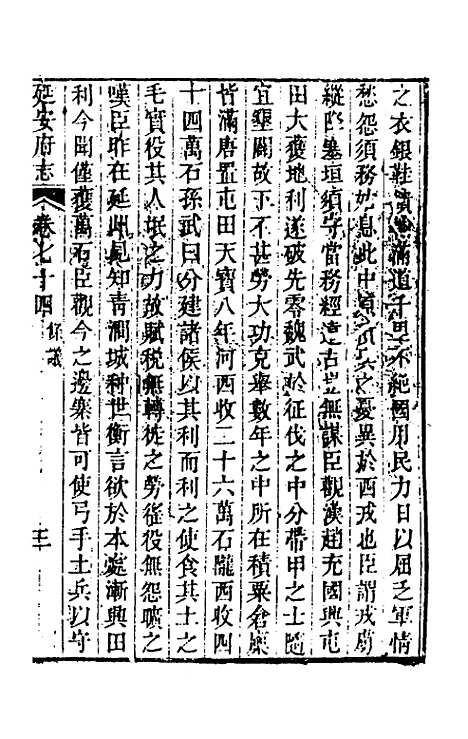 之衣銀鞋滿道千里不絕國用民力日以屈乏軍情
愁怨須務姑息此中原之憂異於西戎也臣謂戎虜
縱降塞垣須守當務經遠古豈無謀臣觀漢趙充國興屯
田大獲地利遂破先零魏武於征伐之中分帶甲之士隨
宜墾闢故下不甚勞大功克舉數年之中所在積粟倉廩
皆滿唐置屯田天寶八年河西收二十六萬石隴西收四
十四萬石孫武曰分建諸侯以其利而利之使食其土之
毛實役其人氓之力故賦稅無轉徙之勞徭役無怨曠之
嘆臣昨在延州見知青澗城种世衡言欲於本處漸興田
利今聞僅獲萬石臣觀今之邊寨皆可使弓手土兵以守
延安府志 卷七十四 係議